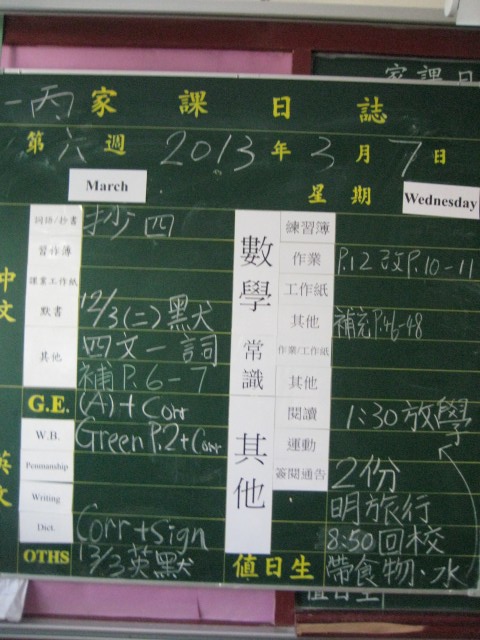 家課日
一丙 家課日誌
第六週 2013年3月7日
March 星期 Wednesday
中文
詞語/抄書 抄四
習作簿
課業工作紙
默書 12/3(二)默
其他 四文一詞
補P.6-7
英文
G.E. (A)+Corr
W.B. Green P.2+Corr
Penmanship
Writing
Dict. Corr+sign
OTHS 13/3英默
數學
練習簿
作業 P.12 改P.10-11
工作紙
其他 補充P.46-48
常識
作業/工作紙
其他
其他
閱讀 1:30放學
運動
簽閱通告 2份
明旅行
8:50回校
值日生 帶食物、水
值日生